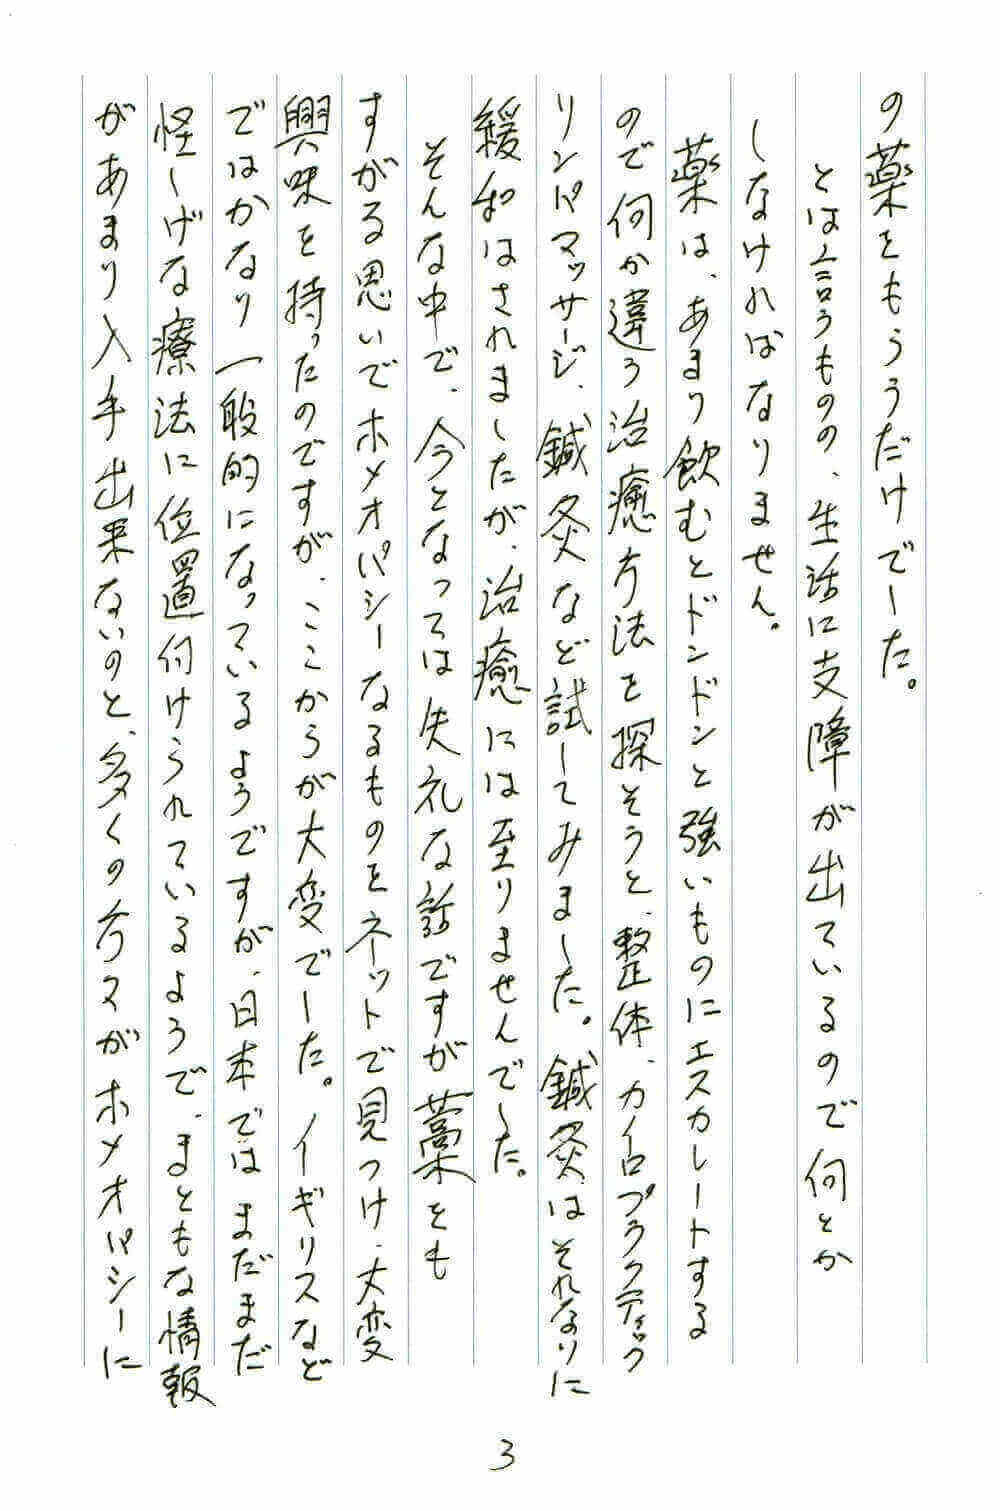 の薬をもらうだけでした。
とは言うものの、生活に支障が出ているので何とか
しなければなりません。
薬は、あまり飲むとドンドンと強いものにエスカレートする
ので何か違う治癒方法を探そうと、整体、カイロプラクティック
リンパマッサージ、鍼灸など試してみました。鍼灸はそれなりに
緩和はされましたが、治癒には至りませんでした。
そんな中で、今となっては失礼な話ですが藁をも
すがる思いでホメオパシーなるものをネットで見つけ、大変
興味を持ったのですが、ここからが大変でした。イギリスなど
ではかなり一般的になっているようですが、日本ではまだまだ
怪しげな療法に位置付けられているようで、まともな情報
があまり入手出来ないのと、多くの方々がホメオパシーに
3